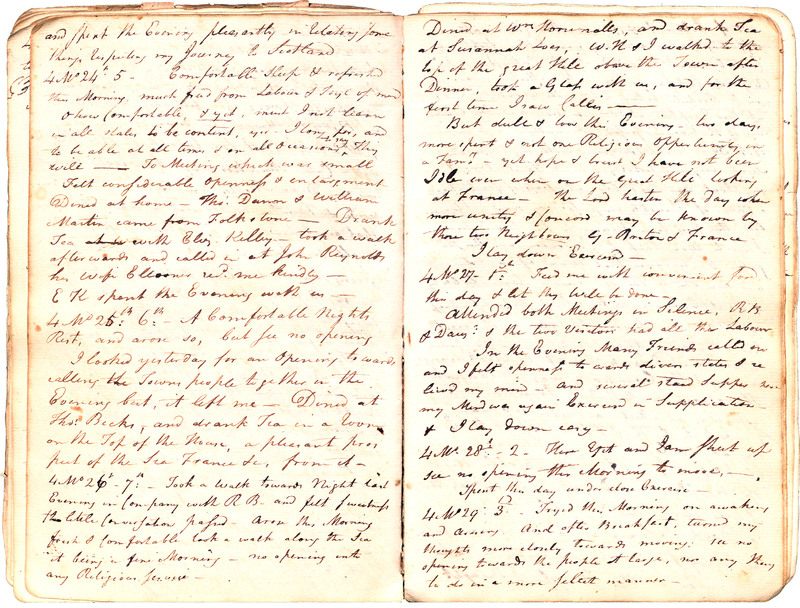 and spent the Evening pleasantly in relating some
things respecting my Journey to Scotland
4 Mo 24th 5 - Comfortable Sleep & refreshed
this Morning, much freed from Labour &
O how Comfortable, & yet, must I not learn
in all states to be content, yes I long for, and
to be able at all times & on all Occasions to say Thy
will — To Meeting which was small
Felt considerable openness & enlargement
Dined at home - Thos Dawson & William
Martin came from Folkstone — Drank
Tea with Eliz. Kelley - took a walk
afterwards and called in at John Reynolds
his wife Eleonor recd. me kindly —
E K spent the Evening with us —
4 Mo 25th: 6th - A Comfortable Nights
Rest, and arose so, but see no opening
I looked yesterday for an Opening towards
calling the Towns people together in the
Evening but, it left me — Dined at
Thos. Becks, and drank Tea in a Room
on the Top of the House, a pleasant pros
pect of the Sea France &c, from it —
4 Mo 26 - 7th - Took a walk towards Night last
Evening in Company with R B - and felt sweetness
the little Conversation passed - Arose this Morning
fresh & Comfortable took a walk along the Sea
it being a fine Morning - no opening into
any Religious service —
Dined at Wm, and drank Tea
at Susannah; W. H & I walked to the
top of the great Hill above the Town after
Dinner, took a Glass with us, and for the
first time I saw Calles —
But dull & low this Evening - two days
more spent & not one Religious Opportunity in
a Famy. - yet hope & trust I have not been
Idle even when on the Great Hill looking
at France - The Lord hasten the day when
more unity & Concord may be known by
these two Neighbours G. Briton & France
I lay down Exercised —
4 Mo 27 - 1st: Feed me with convenient food
this day & let thy Will be done
Attended both Meetings in Silence, R B
& & the two Visitors had all the Labour
In the Evening Many Friends called in
and I felt openness towards divers states I re
lieved my mind - and several staid Supper
my Mind was again Exercised in Supplication
& I lay down easy -
4 Mo. 28th - 2 - Here Yet and I am shut up
see no opening this Morning to move, -
Spent this day under close Exercise —
4 Mo 29: 3rd - Tryed this Morning on awaking
and arising And after Breakfast, turned my
thoughts more closely towards moving: see no
opening towards the people at large, nor any thing
to do in a more select manner —